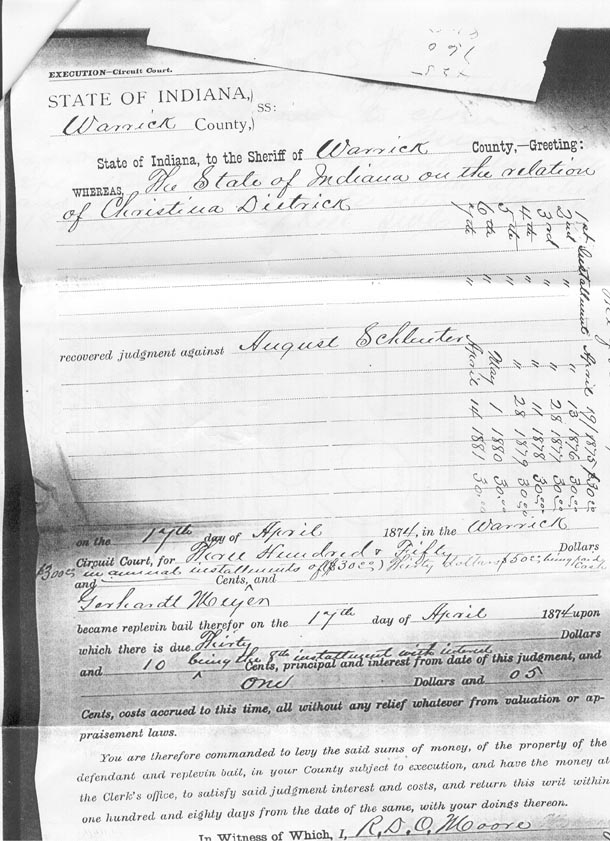 EXECUTION—Circuit Court.
STATE OF INDIANA,) SS:
Warrick County,)
State of Indiana, to the Sheriff of Warrick County,—Greeting:
WHEREAS, The State of Indiana on the relation
of Christina Dietrick
recovered judgment against August Schluter
1st Installment April 19/1875 $30.00
2nd " " 13 1876 30.00
3rd " " 28 1877 30.00
4th " " 11 1878 30.00
5th " " 28 1879 30.00
6th " May 1 1880 30.00
7th " April 14 1881 30.00
on the 17th day of April 1874, in the Warrick
Circuit Court, for Three Hundred & Fifty Dollars
$300.00 in annual installments of ($30.00) Thirty Dollars $50.00 being paid Cash
and Cents, and
Gerhardt Meyer
became replevin bail therefor on the 17th day of April 1874 upon
which there is due Thirty Dollars
being the 8th installment with interest
and 10 Cents, principal and interest from date of this judgment, and
One Dollars and 05
Cents, costs accrued to this time, all without any relief whatever from valuation or ap-
praisement laws.
You are therefore commanded to levy the said sums of money, of the property of the
defendant and replevin bail, in your County subject to execution, and have the money at
the Clerk's office, to satisfy said judgment interest and costs, and return this writ within
one hundred and eighty days from the date of the same, with your doings thereon.
In Witness of Which, I, R. D. O. Moore